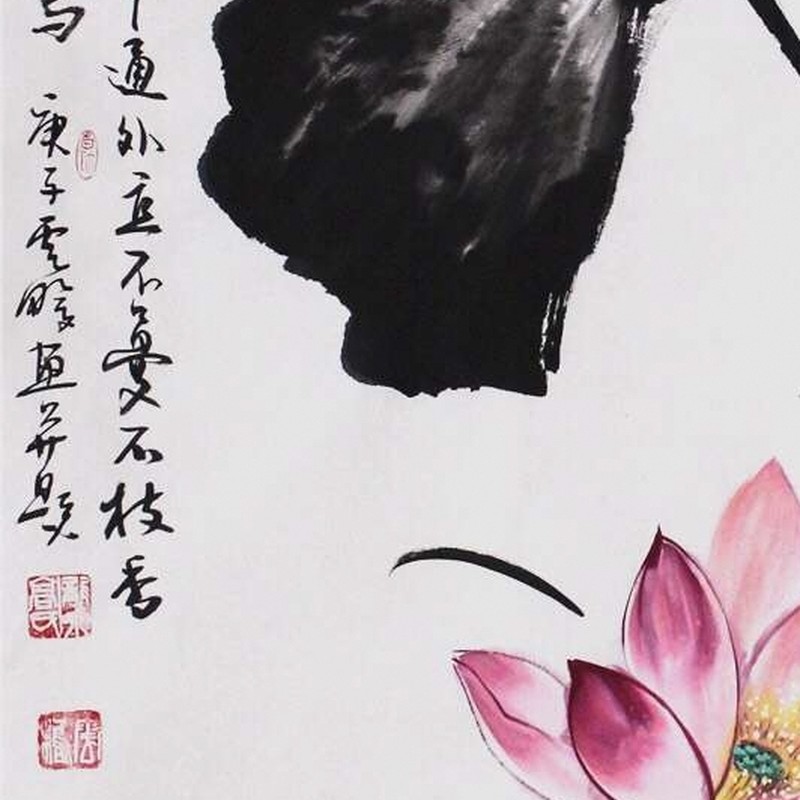 通外直不蔓不枝香
庚子雲画并题